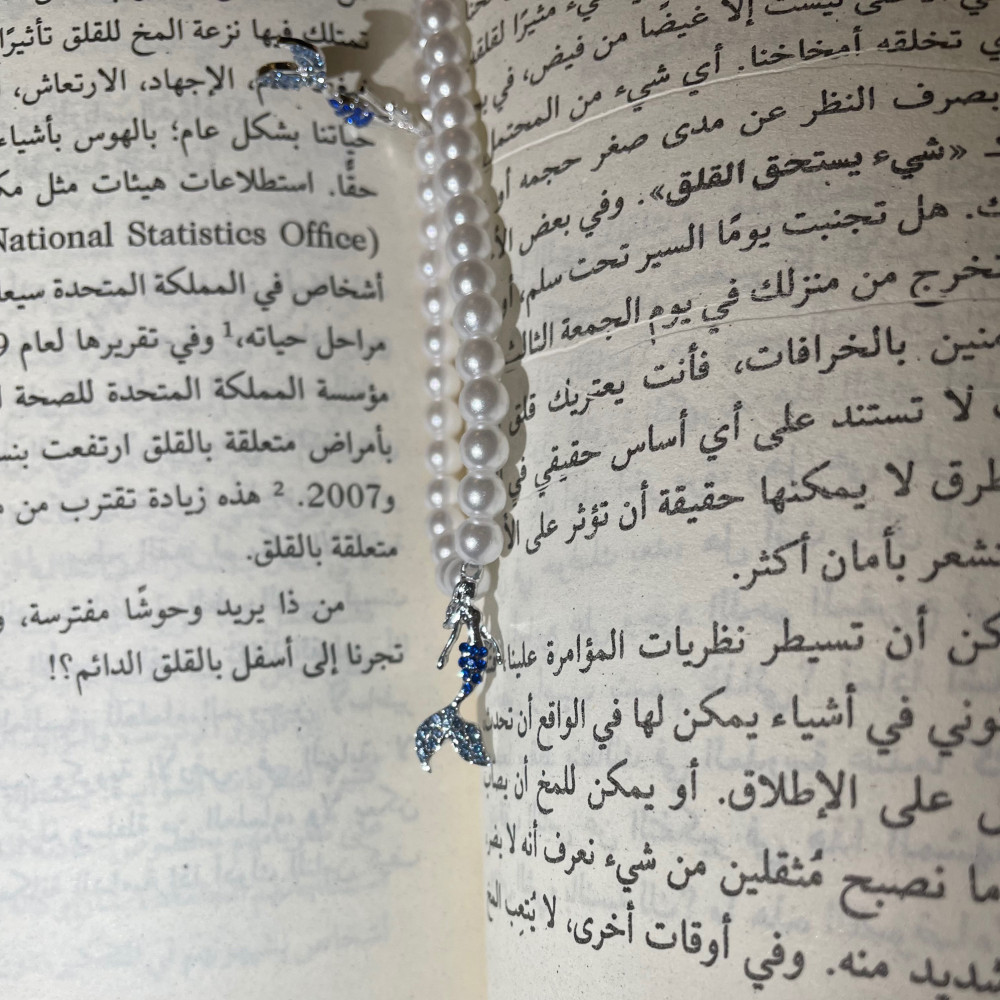 ليست إلا غيضًا من فيض، في
ي تخلقه أمخاخنا. أي شيء من المحتمل
بصرف النظر عن مدى صغر حجمه أو
«شيء يستحق القلق». وفي بعض
ك. هل تجنبت يومًا السير تحت سلم، أو
تخرج من منزلك في يوم الجمعة الثالث
منين بالخرافات، فأنت يعتريك قلق
لا تستند على أي أساس حقيقي في
طرق لا يمكنها حقيقة أن تؤثر على الأ
تشعر بأمان أكثر.
كن أن تسيطر نظريات المؤامرة علينا
وني في أشياء يمكن لها في الواقع أن تحدث
على الإطلاق. أو يمكن للمخ أن يصاب
ما نصبح مُثقلين من شيء نعرف أنه لا يضر
شديد منه. وفي أوقات أخرى، لا يُتعِب المخ
تمتلك فيها نزعة المخ للقلق تأثيرًا
الإجهاد، الارتعاش،
حياتنا بشكل عام؛ بالهوس بأشياء
حقًّا. استطلاعات هيئات مثل
National Statistics Office)
أشخاص في المملكة المتحدة
مراحل حياته،1 وفي تقريرها لعام
مؤسسة المملكة المتحدة للصحة
بأمراض متعلقة بالقلق ارتفعت
و2007. 2 هذه زيادة تقترب من
متعلقة بالقلق.
من ذا يريد وحوشًا مفترسة،
تجرنا إلى أسفل بالقلق الدائم؟!